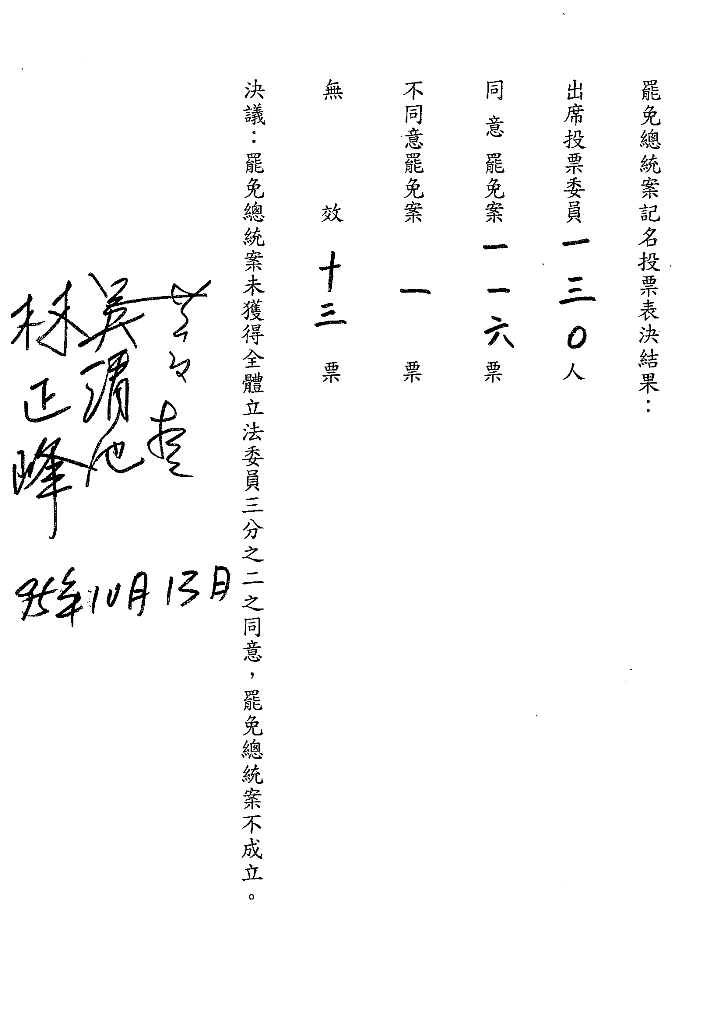 罷免總統案記名投票表決結果：
出席投票委員一三０人
同意罷免案一一六票
不同意罷免案一票
無效十三票
決議：罷免總統案未獲得全體立法委員三分之二之同意，罷免總統案不成立。
林正峰
95年10月13日